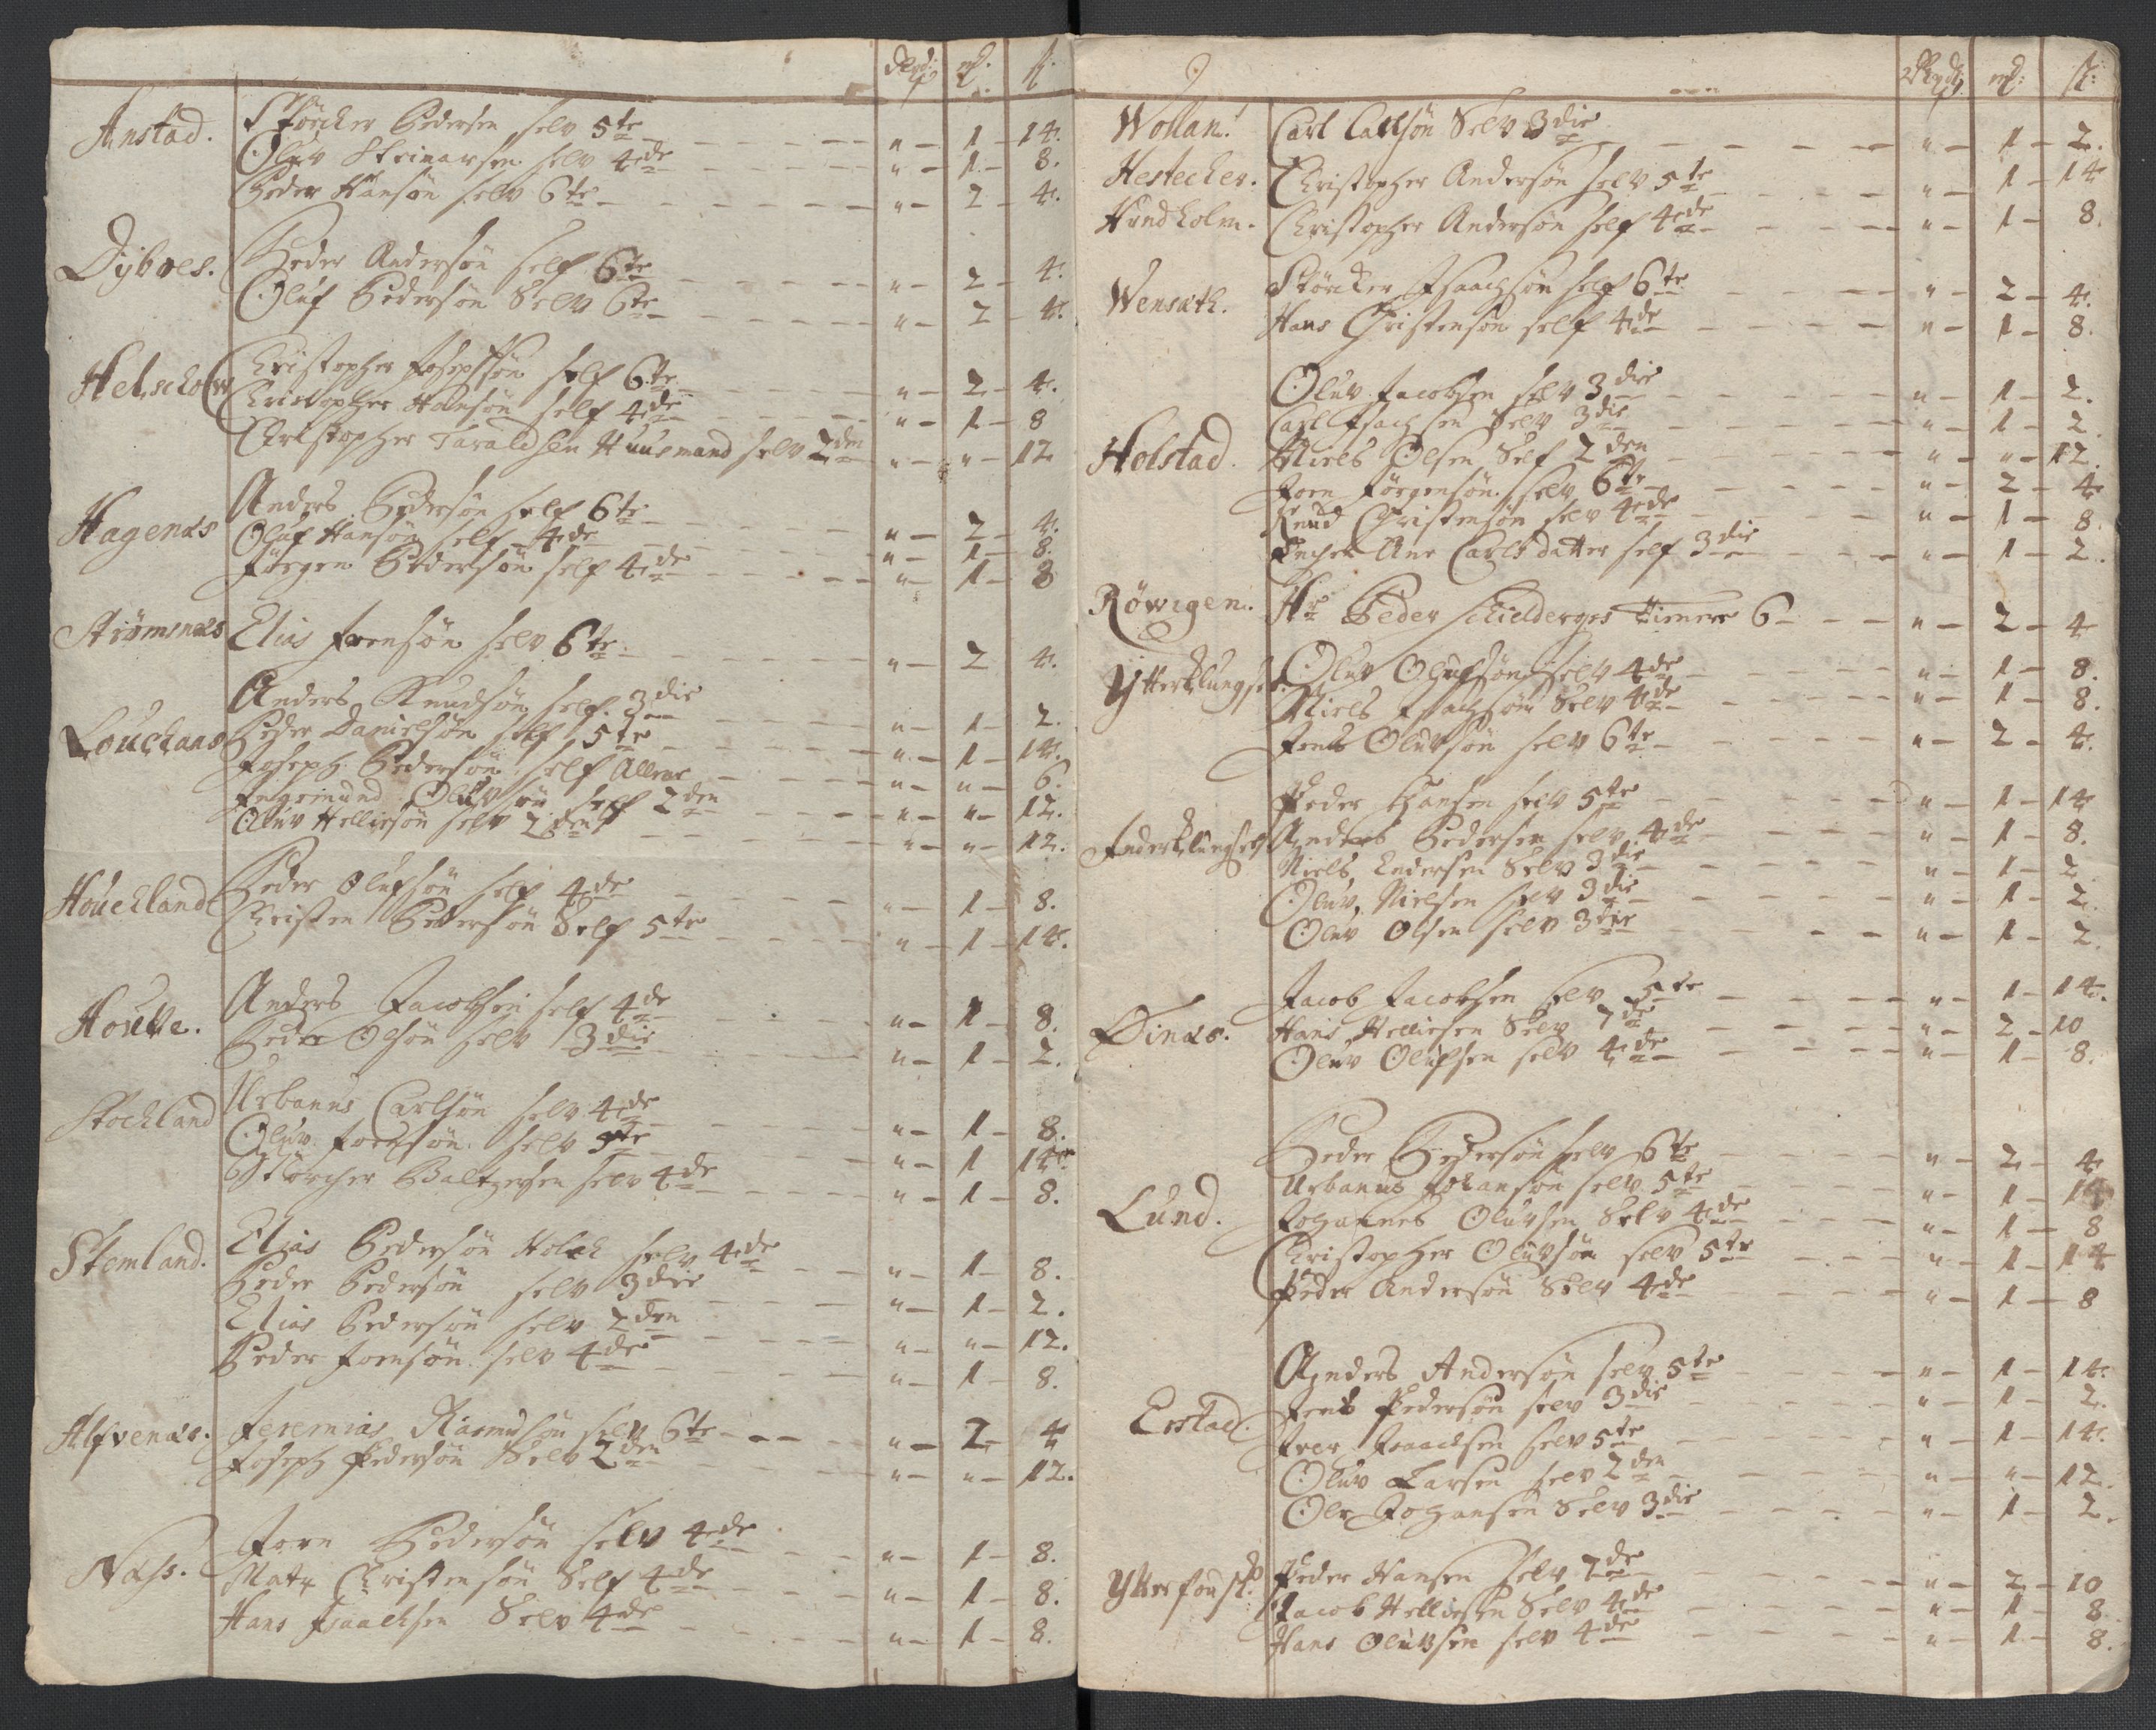 dlrs: mk. ß.
Anstad. Störcker Pedersen selv 5te — " — 1 — 14.
Oluv Steinarsen selv 4de — " — 1 — 8.
Peder Hansøn selv 6te — " — 2 — 4.
Dÿbves. Peder Andersøn self 6te — " — 2 — 4.
Oluf Pedersøn Selv 6te — " — 2 — 4.
Helscholm Christopher Josepsøn self 6te — " — 2 — 4.
Christopher Hansøn self 4de — " — 1 — 8
Christopher Taraldsen Huusmand selv 2den " — " — 12
Hagenæs Anders Pedersøn self 6te — " — 2 — 4.
Oluf Hansøn self 4de — " — 1 — 8.
Jörgen Pedersøn self 4de — " — 1 — 8
Strømsnæs Elias Joensøn selv 6te — " — 2 4.
Anders Knudsøn self 3die — " — 1 — 2.
Louchans Peder Danielsøn self 5te — " — 1 — 14.
Joseph Pedersøn self Allene — " — " — 6.
Ingemund Oluvsøn self 2den — " — " — 12.
Oluv Helliesøn selv 2den — " — " — 12.
Houchland Peder Olufsøn self 4de — " — 1 — 8.
Christen Pedersøn Self 5te — " — 1 — 14.
Houkke. Anders Jacobsen self 4de — " — 1 — 8.
Peder Olsøn selv 3die — " — 1 — 2.
Stochland Urbanus Carlsøn selv 4de — " — 1 — 8.
Oluv Joensøn selv 5te — " — 1 14.
Störcher Baltzersen selv 4de — " — 1 — 8.
Stemland. Elias Pedersøn Holch selv 4de — " — 1 — 8.
Peder Pedersøn selv 3die — " — 1 — 2.
Elias Pedersøn selv 2den — " — " — 12.
Peder Joensøn selv 4de — " — 1 — 8.
Alfvenæs. Jeremias Rasmusøn selv 6te — " — 2 — 4
Joseph Pedersøn Selv 2den — " — " — 12.
Næss. Joen Pedersøn selv 4de — " — 1 — 8.
Mats Christensøn Self 4de — " — 1 — 8.
Hans Isaachsen Selv 4de — " — 1 — 8.
mk: ß:
Wollan: Carl Carlsøn Selv 3die — " — 1 — 2.
Hestecker. Christopher Andersøn selv 5te — " — 1 — 14
Hundholm. Christopher Andersøn self 4de — " — 1 — 8.
Wensæth. Störcker Isaachsøn self 6te — " — 2 — 4.
Hans Christensøn self 4de — " — 1 — 8.
Oluv Jacobsen selv 3die — " — 1 — 2.
Carl Isachsen Selv 3die — " — 1 — 2.
Holstad. Niels Olsen Self 2den — " — " — 12.
Joen Jörgensøn selv 6te — " — 2 — 4
Knud Christensøn selv 4de — " — 1 — 8.
Ane Carlsdatter self 3die — " — 1 — 2.
Röwigen. Hr Peder Schielderops Tienere 6 — " — 2 — 4
Ytterklungset. Oluv Olufsøn selv 4de — " — 1 — 8.
Niels Isachsøn Selv 4de — " — 1 — 8.
Jens Oluvsøn selv 6te — " — 2 — 4.
Peder Hansen selv 5te — " — 1 — 14
Inderklungset Anders Pedersen selv 4de — " — 1 — 8.
Niels, Endersen Selv 3die — " — 1 — 2
Oluv, Nielsen selv 3die — " — 1 — 2.
Oluv Olsen selv 3die — " — 1 — 2.
Jacob Jacobsen selv 5te — " — 1 — 14.
Finæs. Hans Helliesen Selv 7de — " — 2 — 10
Oluv Olufsen selv 4de — " — 1 — 8.
Peder Pedersøn selv 6te — " — 2 — 4
Urbanus Johansøn selv 5te — " — 1 — 14
Lund. Johannes Oluvsen Selv 4de — " — 1 — 8
Christopher Oluvsøn selv 5te — " — 1 — 14
Peder Andersøn Selv 4de — " — 1 — 8
Anders Andersøn selv 5te — " — 1 — 14.
Erstad. Jens Pedersøn selv 3die — " — 1 — 2.
Iver Isaachsen selv 5te — " — 1 — 14.
Oluv Larsen selv 2den — " — " — 12.
Ole Johansen Selv 3die — " — 1 — 2.
Peder Hansen selv 7de — " — 2 — 10
Jacob Helliesen Selv 4de — " — 1 — 8.
Hans Oluvsen selv 4de — " — 1 — 8.